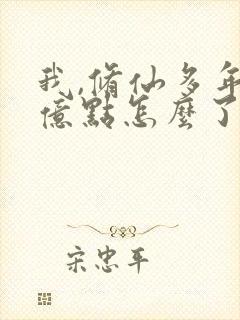 我,脩仙多年
億點怎麼了
宋忠平